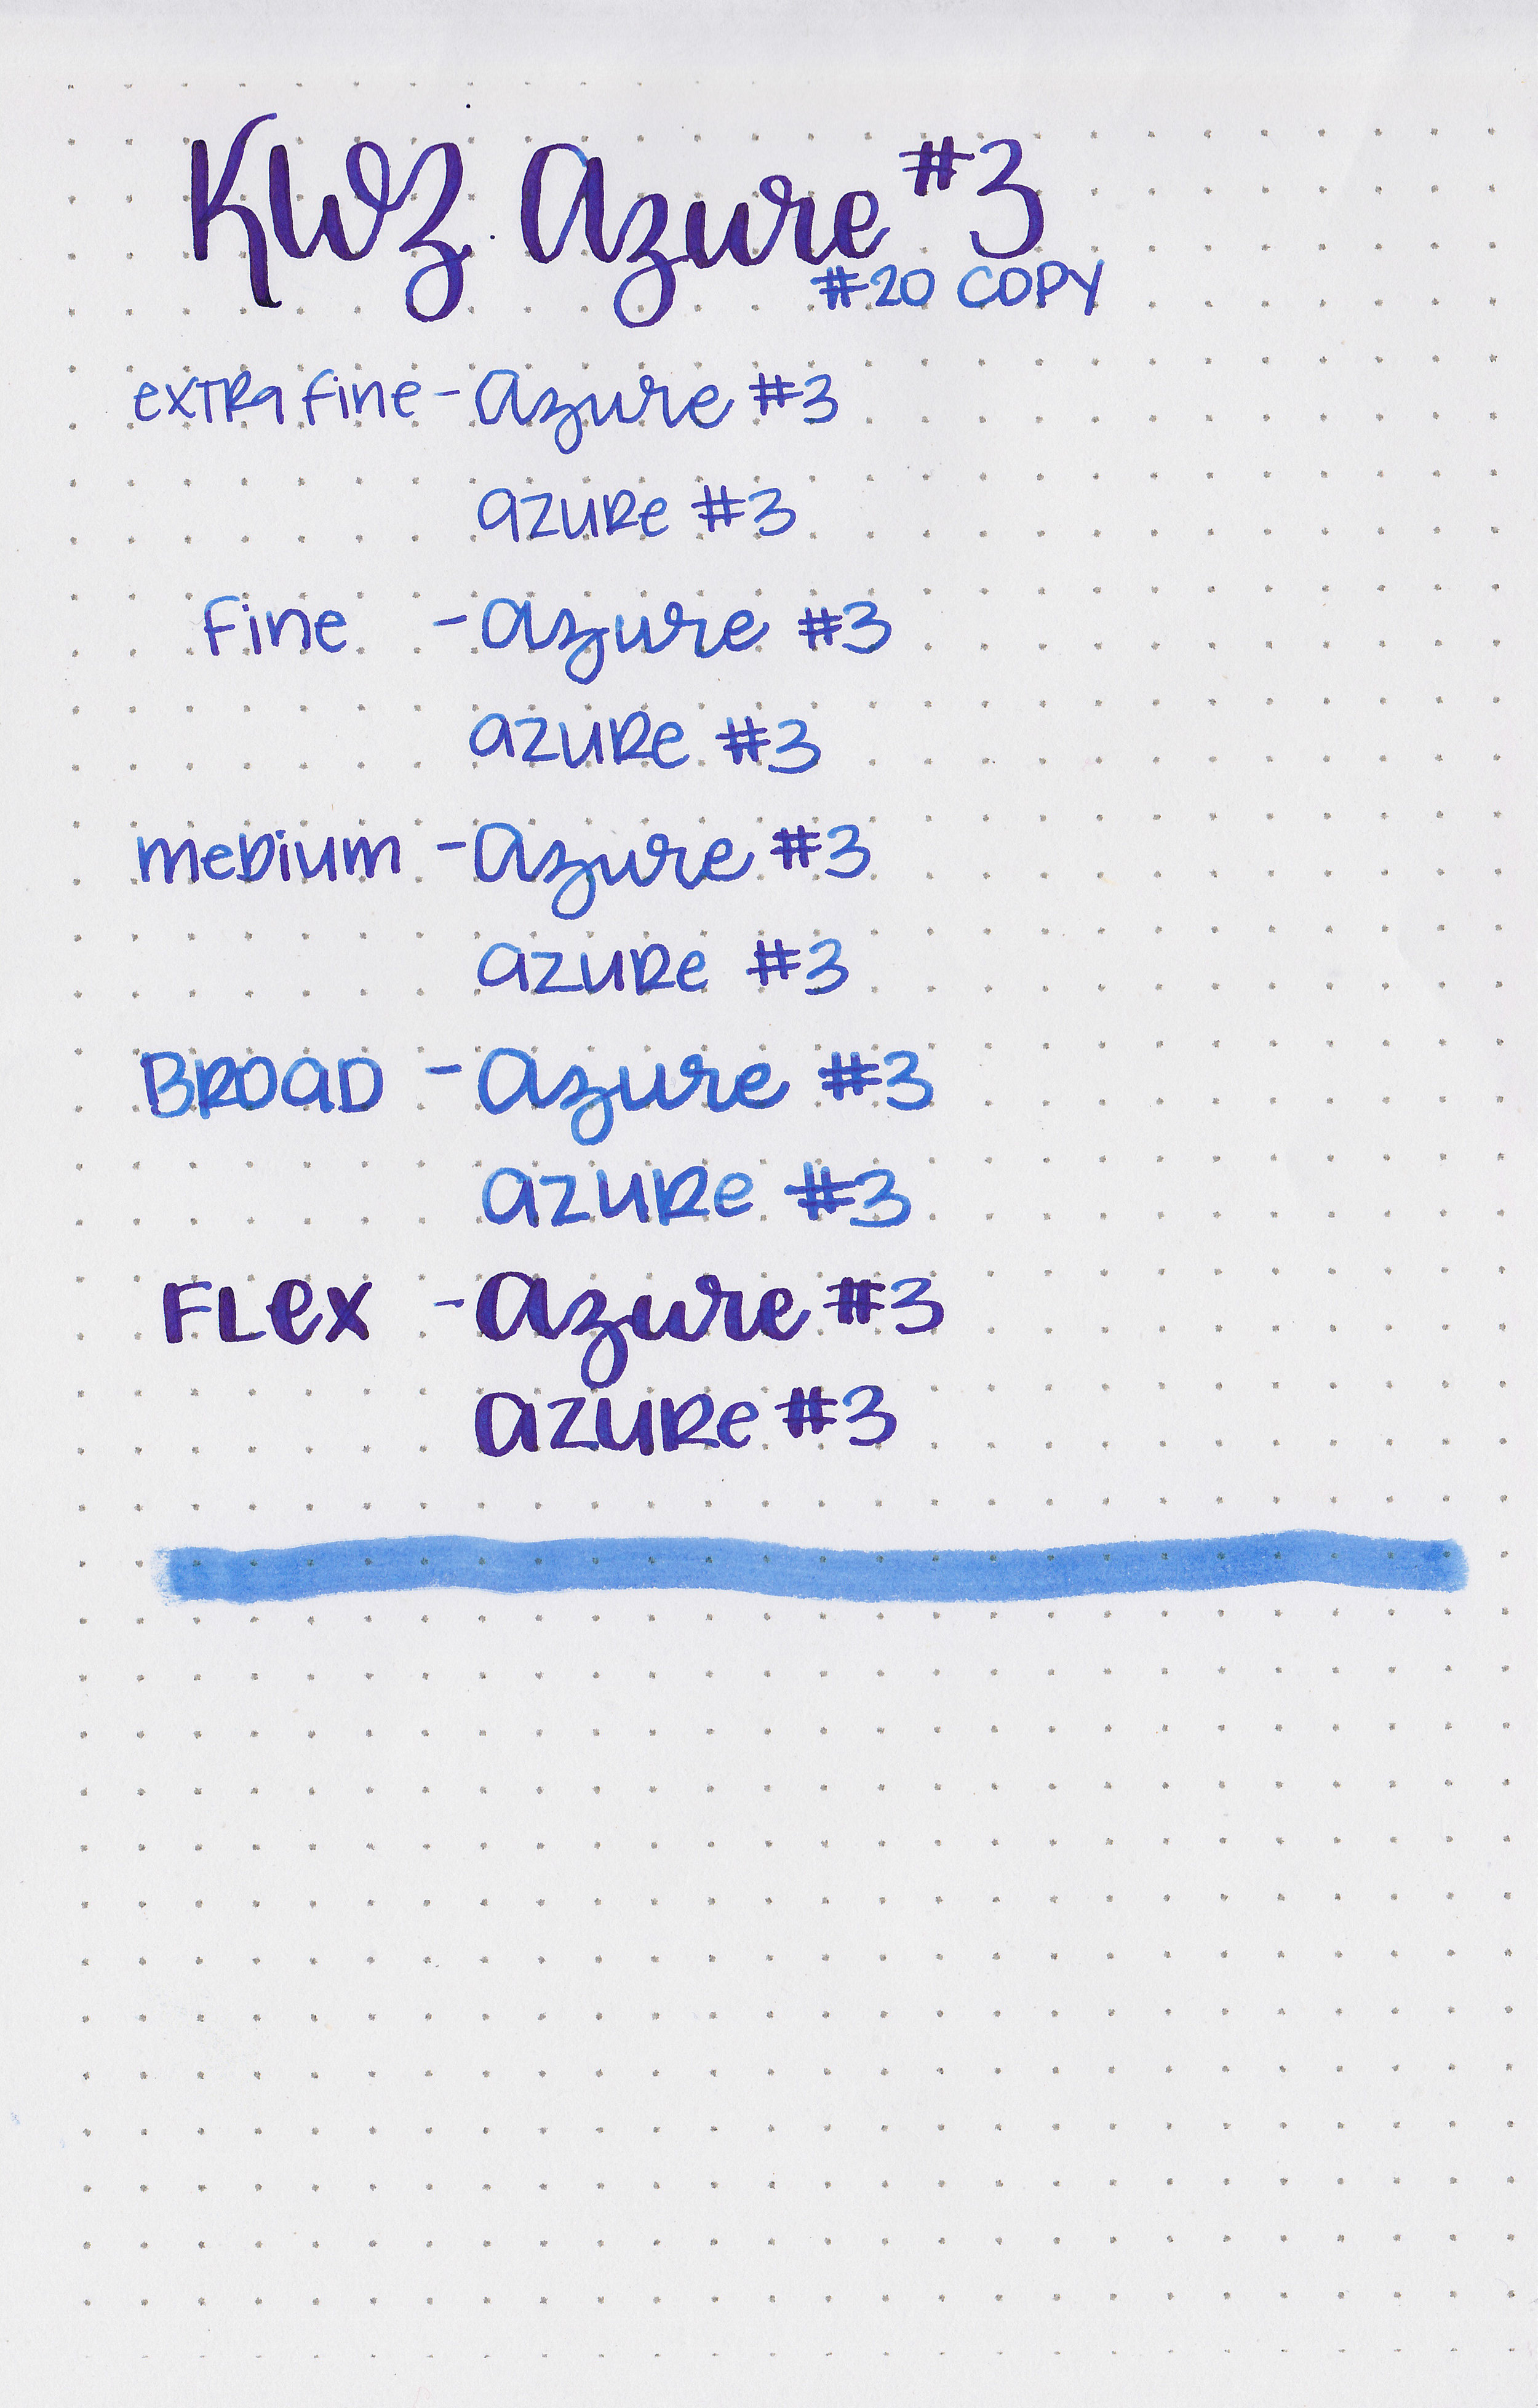 KWZ Azure #3
#20 COPY
extra fine - azure #3
azure #3
fine - azure #3
azure #3
medium - azure #3
azure #3
BROAD - azure #3
azure #3
FLex - azure #3
azure #3